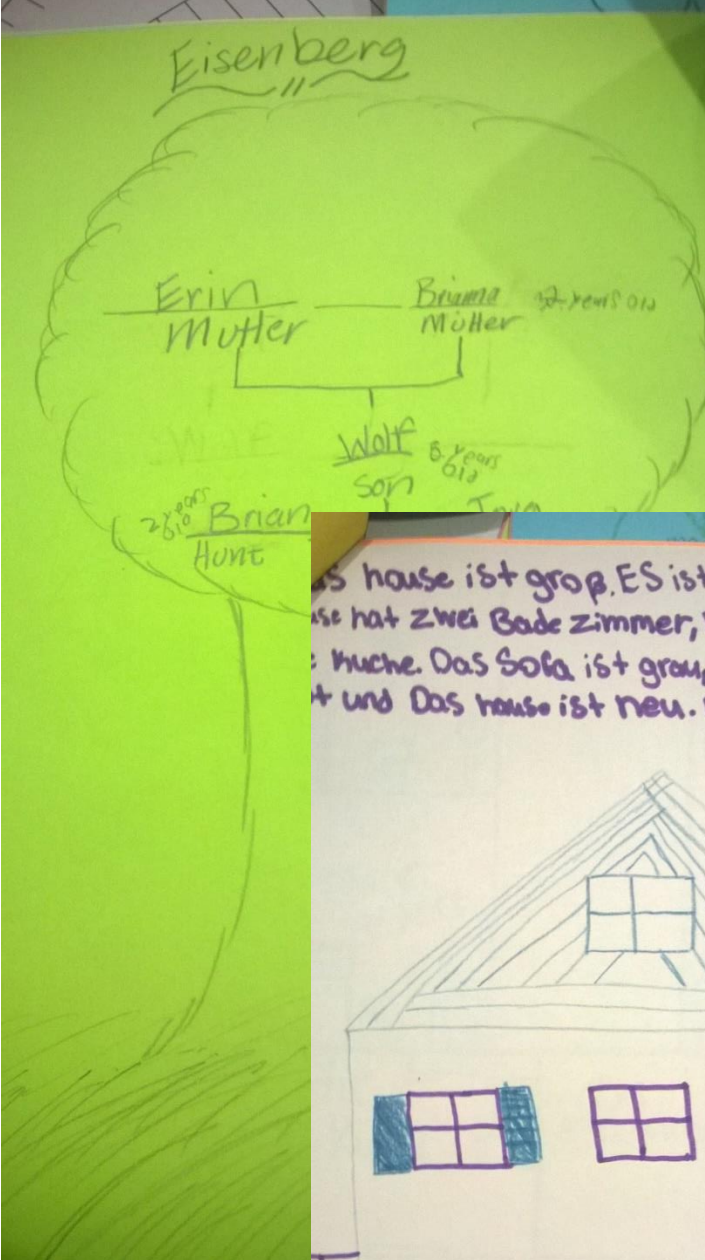 Eisenberg
Erin
Mutter
Brianna
Mutter
32 years old
Wolf
son
8 years
old
2 years
old
Brian
Hunt
s house ist groß. ES ist
use hat zwei Bade zimmer,
e Kuche. Das Sofa ist grau,
t und Das house ist neu.